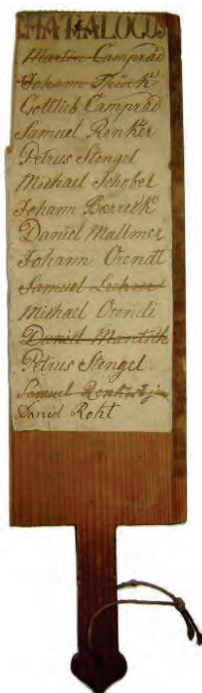 MATALOGUS
Martin Camprad
Johann
Gottlieb Camprad
Samuel Renker
Petrus Stengel
Michael Schobel
Johann
Daniel Mallmer
Johann Orendt
Samuel
Michael Orendi
Daniel
Petrus Stengel
Samuel
Daniel Roht